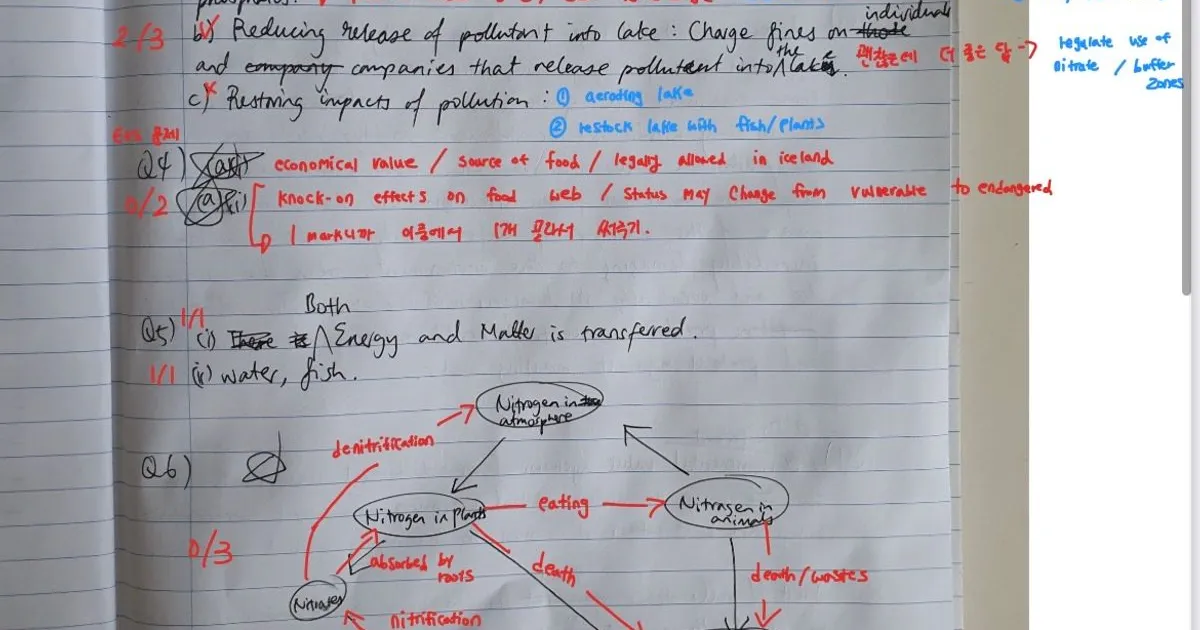 2/3 b) Reducing release of pollutant into lake : Charge fines on those individuals
and company companies that release pollutent into the lake. 괜찮은데 더 좋은 답 → regulate use of nitrate / buffer zones
c) Restoring impacts of pollution : ① aerading lake
② restock lake with fish/plants
Q4) economical value / source of food / legally allowed in iceland
0/2 (a)(i) knock-on effects on food web / status may change from vulnerable to endangered
1 mark니까 이중에서 1개 골라서 써주기.
Both
Q5) 1/1 (i) There is Energy and Matter is transferred.
1/1 (ii) water, fish.
Nitrogen in atmosphere
denitrification
Q6)
Nitrogen in plants
eating
Nitrogen in animals
0/3
absorbed by roots
death
death/wastes
Nitrates
nitrification